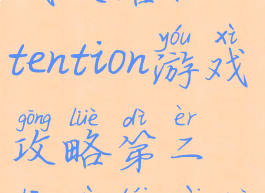 yóu xì
tention游戏
gōng lüè dì èr
攻略第二